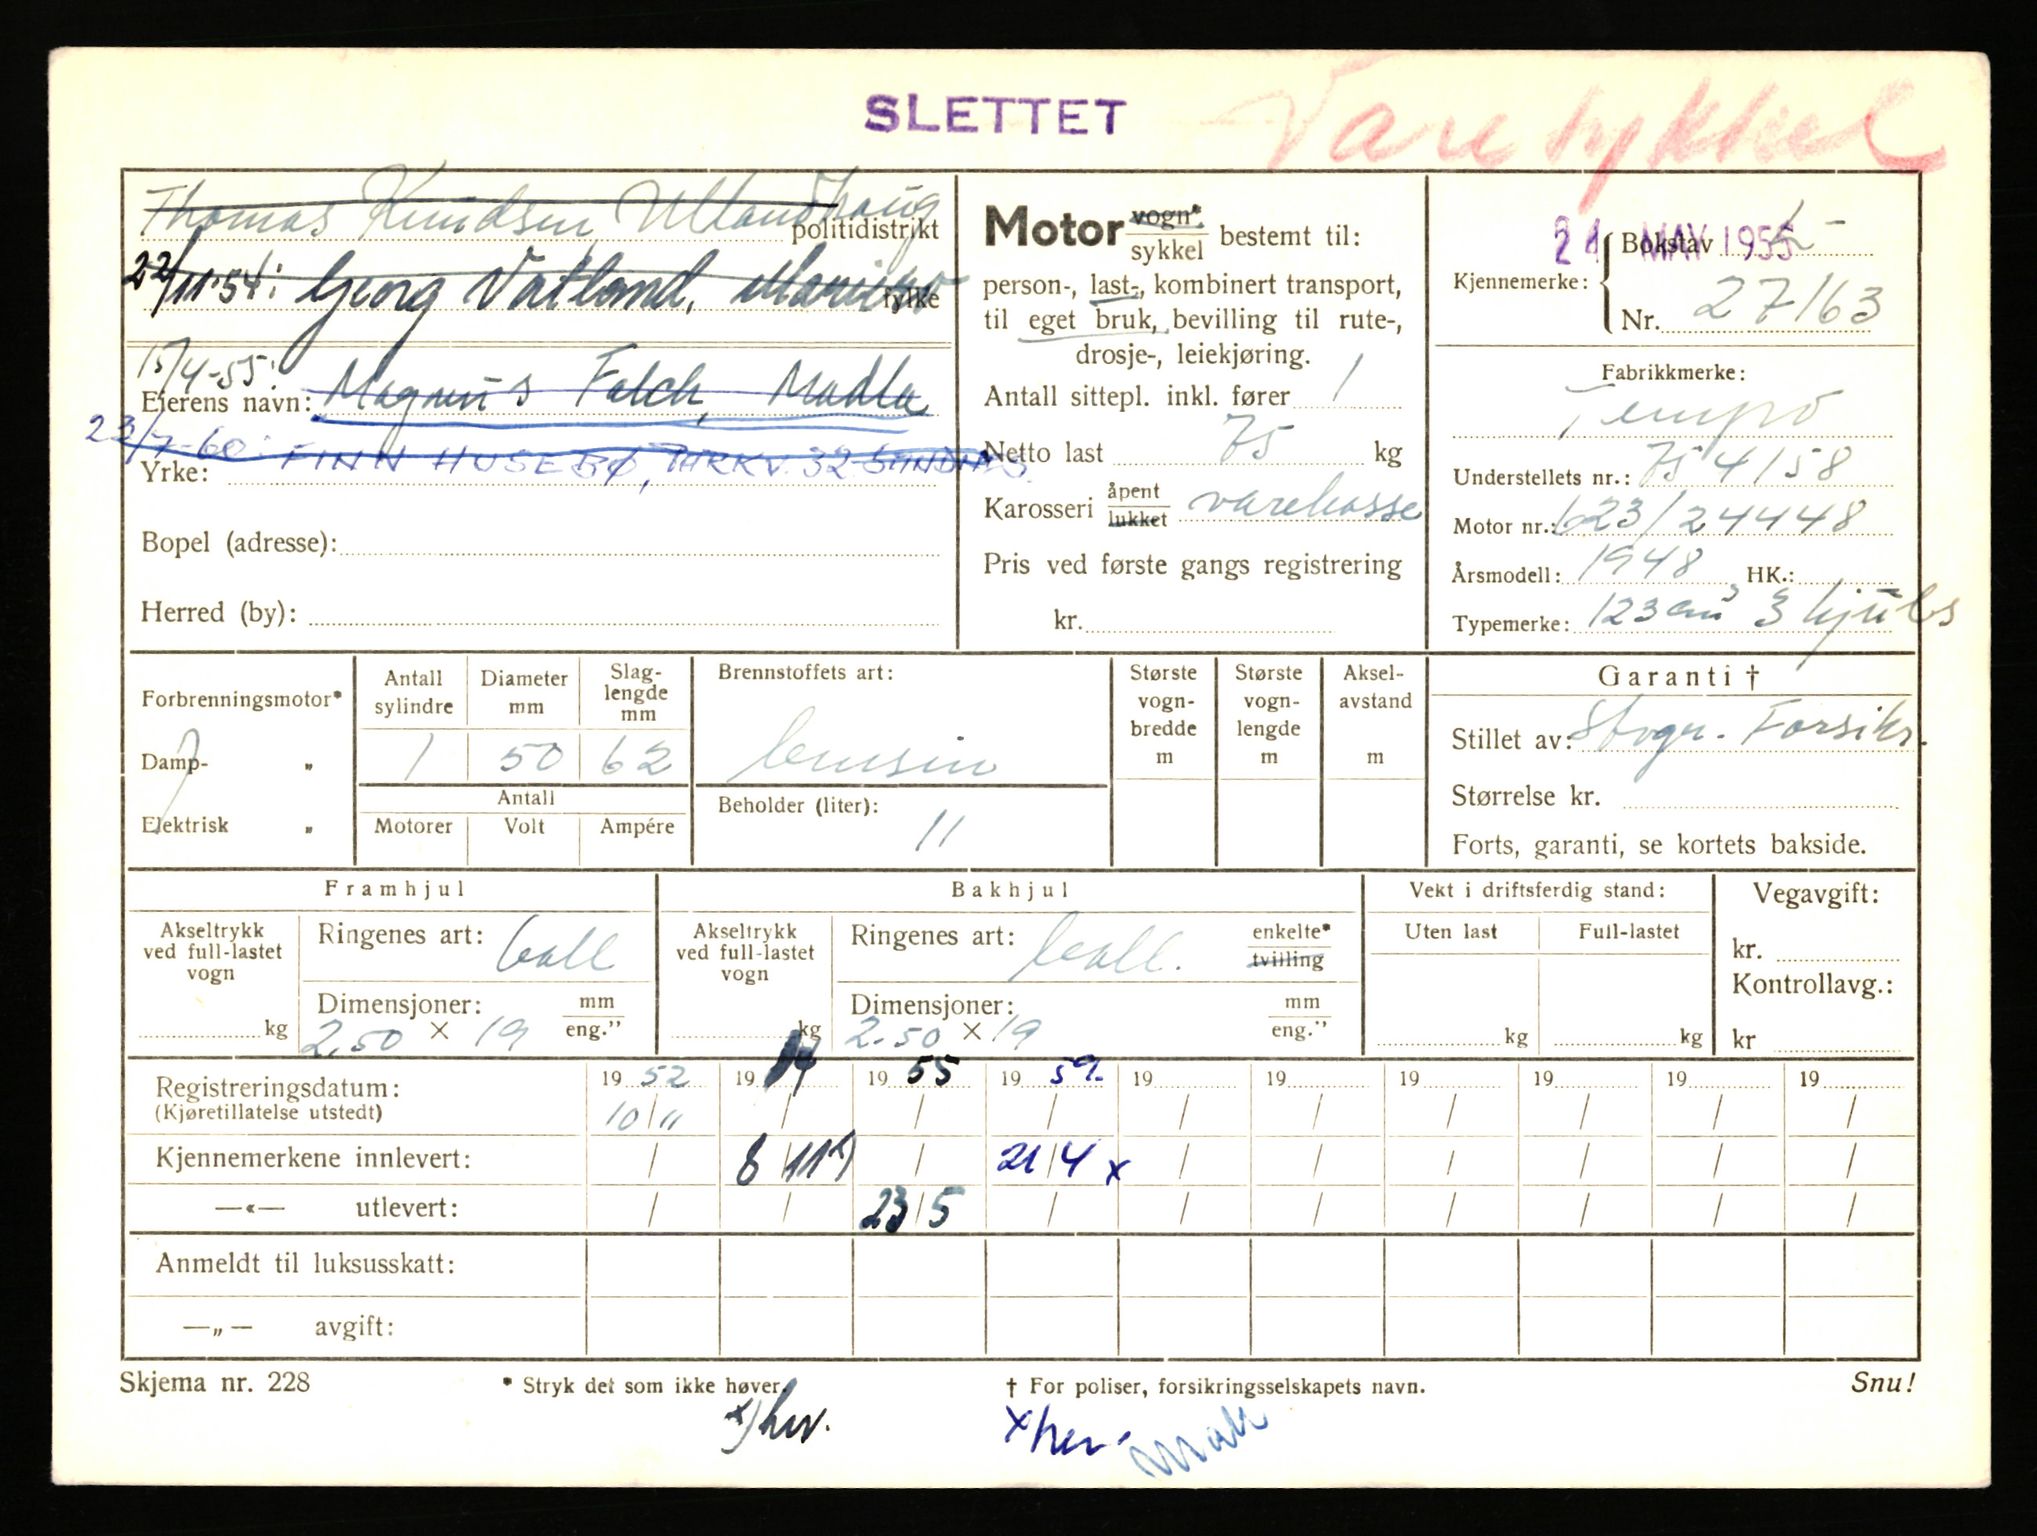 SLETTET Varesykkel
Thomas Knudsen Ullandhaug politidistrikt
22/11-54: Georg Vatland, fylke
15/4-55:
Eierens navn: Magnus Falch, Madla
23/7-60: FINN HUSEBØ, PARKV. 32 SANDNES.
Yrke:
Bopel (adresse):
Herred (by):
Motor vogn*
sykkel bestemt til:
person-, last-, kombinert transport,
til eget bruk, bevilling til rute-,
drosje-, leiekjøring.
Antall sittepl. inkl. fører 1
Netto last 75 kg
Karosseri åpent
lukket varekasse
Pris ved første gangs registrering
kr.
21 MAY 1955
Kjennemerke: Bokstav L-
Nr. 27163
Fabrikkmerke:
Tempo
Understellets nr.: 754158
Motor nr.: 623/24448
Årsmodell: 1948 HK.:
Typemerke: 123 cm³ 3 hjuls
Forbrenningsmotor*
Damp- „
Elektrisk „
Antall sylindre
1
Diameter mm
50
Slag-lengde mm
62
Antall
Motorer Volt Ampére
Brennstoffets art:
bensin
Beholder (liter):
11
Største vogn-bredde m
Største vogn-lengde m
Aksel-avstand m
Garanti †
Stillet av: Stvgr. Forsikr.
Størrelse kr.
Forts, garanti, se kortets bakside.
Framhjul
Akseltrykk ved full-lastet vogn
kg
Ringenes art: ball
Dimensjoner: mm
2.50 × 19 eng.”
Bakhjul
Akseltrykk ved full-lastet vogn
kg
Ringenes art: ball. enkelte*
tvilling
Dimensjoner: mm
2.50 × 19 eng.”
Vekt i driftsferdig stand:
Uten last Full-lastet
kg kg
Vegavgift:
kr.
Kontrollavg.:
kr
Registreringsdatum: 19 52 19 54 19 55 19 59. 19 19 19 19 19 19
(Kjøretillatelse utstedt) 10/11 / / / / / / / / /
Kjennemerkene innlevert: / 8/11 x) / 21/4 x / / / / / /
—«— utlevert: / / 23/5 / / / / / / /
Anmeldt til luksusskatt:
—„— avgift:
Skjema nr. 228 * Stryk det som ikke høver. † For poliser, forsikringsselskapets navn. Snu!
x) her. x her.